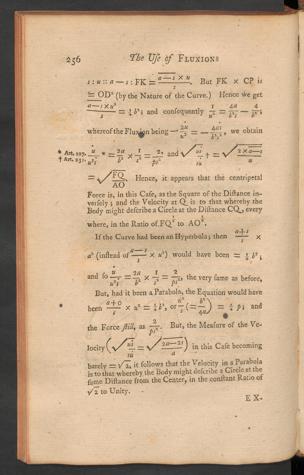 256 The Use of FLUXIONS
s : u :: a — s : FK = \frac{\overline{a-s} × u}{s}. But FK × CP is
= OD² (by the Nature of the Curve.) Hence we get
\frac{\overline{a-s} × u²}{s} = ¼ b²; and consequently \frac{1}{u²} = \frac{4a}{b² s} — \frac{4}{b²};
whereof the Fluxion being — \frac{2u̇}{u³} = — \frac{4aṡ}{b² s²}, we obtain
* Art. 207.
† Art. 231.
Hence, it appears that the centripetal
Force is, in this Case, as the Square of the Distance in-
versely; and the Velocity at Q is to that whereby the
Body might describe a Circle at the Distance CQ, every
where, in the Ratio of FQ^{½} to AO^{½}.
If the Curve had been an Hyperbola; then \frac{a+s}{s} ×
u² (instead of \frac{a-s}{s} × u²) would have been = ¼ b²;
the very same as before,
But, had it been a Parabola, the Equation would have
been \frac{a+0}{s} × u² = ¼ b², or \frac{u²}{s} (= \frac{b²}{4a}) = ¼ p; and
the Force still, as \frac{2}{ps²}. But, the Measure of the Ve-
in this Case becoming
barely = √2, it follows that the Velocity in a Parabola
is to that whereby the Body might describe a Circle at the
same Distance from the Center, in the constant Ratio of
√2 to Unity.
EX-